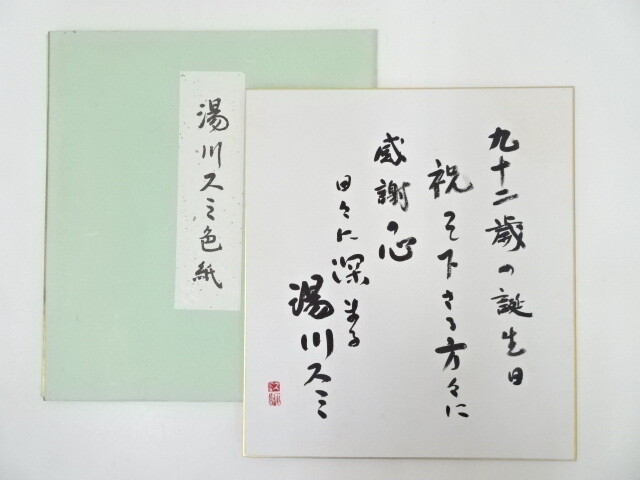 九十二歳の誕生日
祝そ下さる方々に
感謝の心
日々に深まる
湯川スミ
湯川スミ色紙